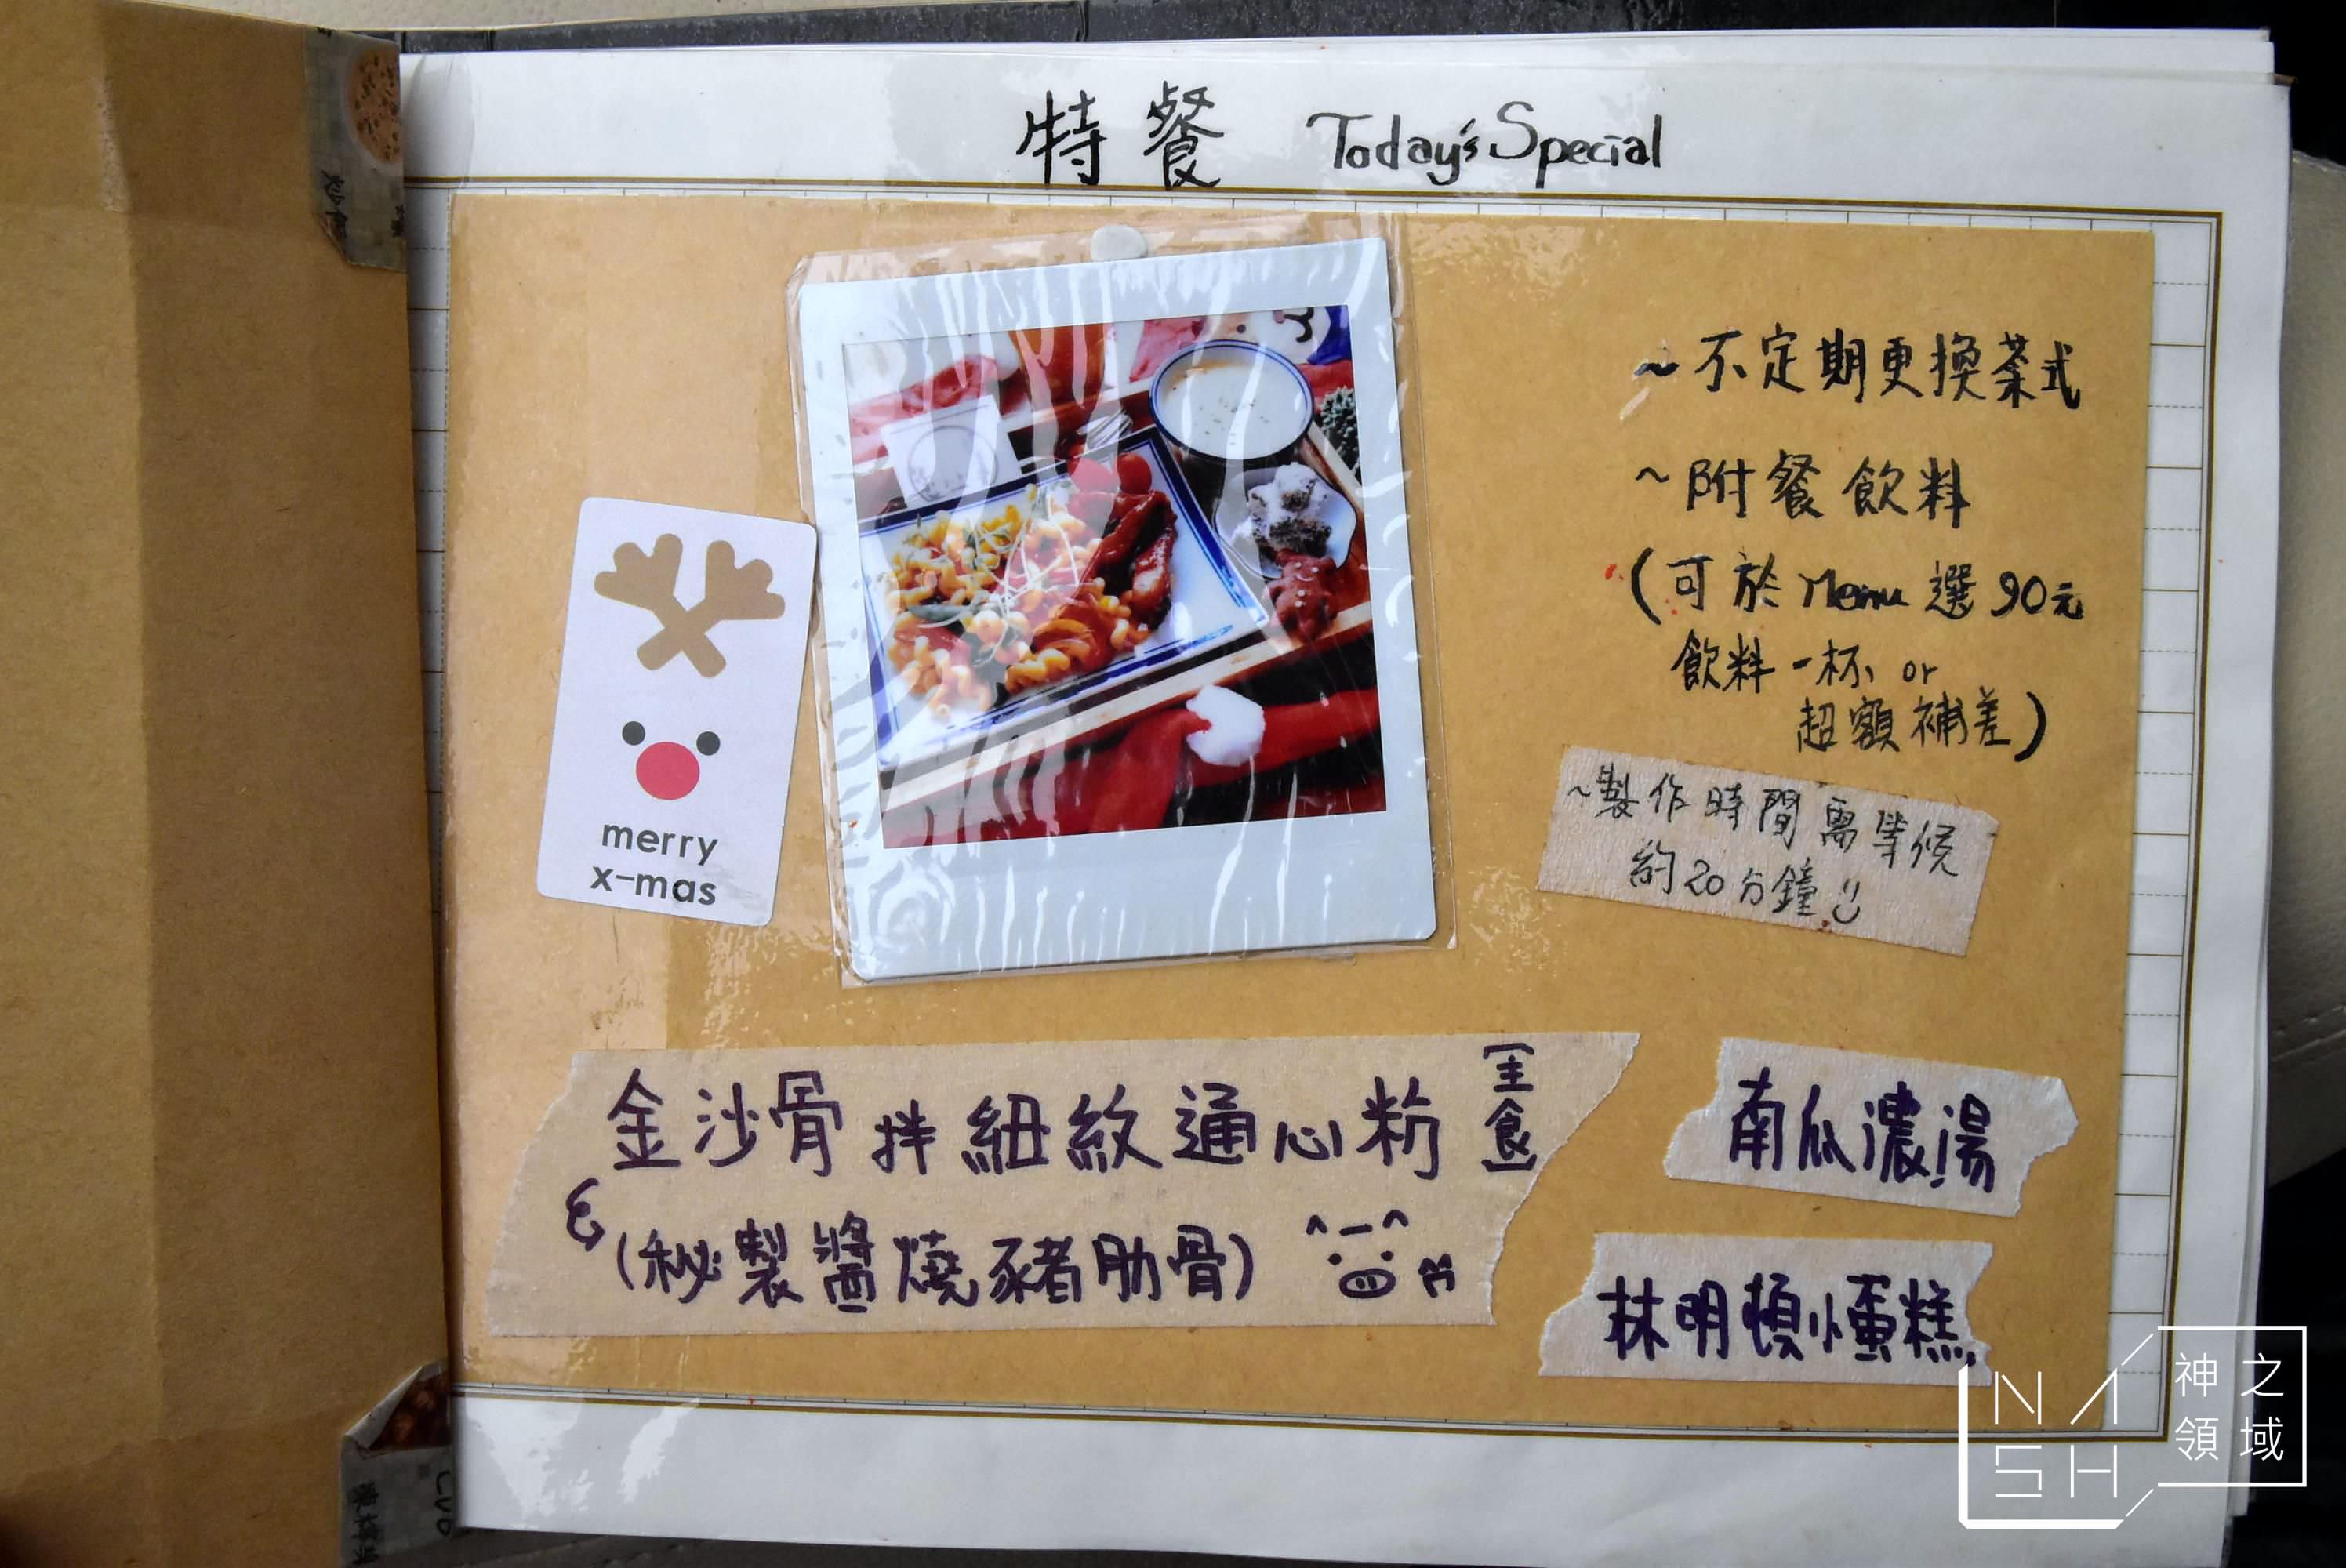 特餐 Today's Special
~不定期更換菜式
~附餐飲料
(可於Menu選90元
飲料一杯 or
超額補差)
~製作時間需等候
約20分鐘
merry
x-mas
金沙骨拌紐紋通心粉
[主食]
(秘製醬燒豬肋骨)
南瓜濃湯
林明頓小蛋糕
NASH
神之
領域